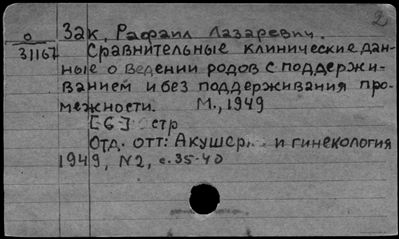 2
О
31167
Зак, Рафаил Лазаревич.
Сравнительные клинические дан-
ные о ведении родов с поддержи-
ванием и без поддерживания про-
межности. М., 1949
[6] стр
Отд. отт: Акушер. и гинекология
1949, N2, с. 35-40